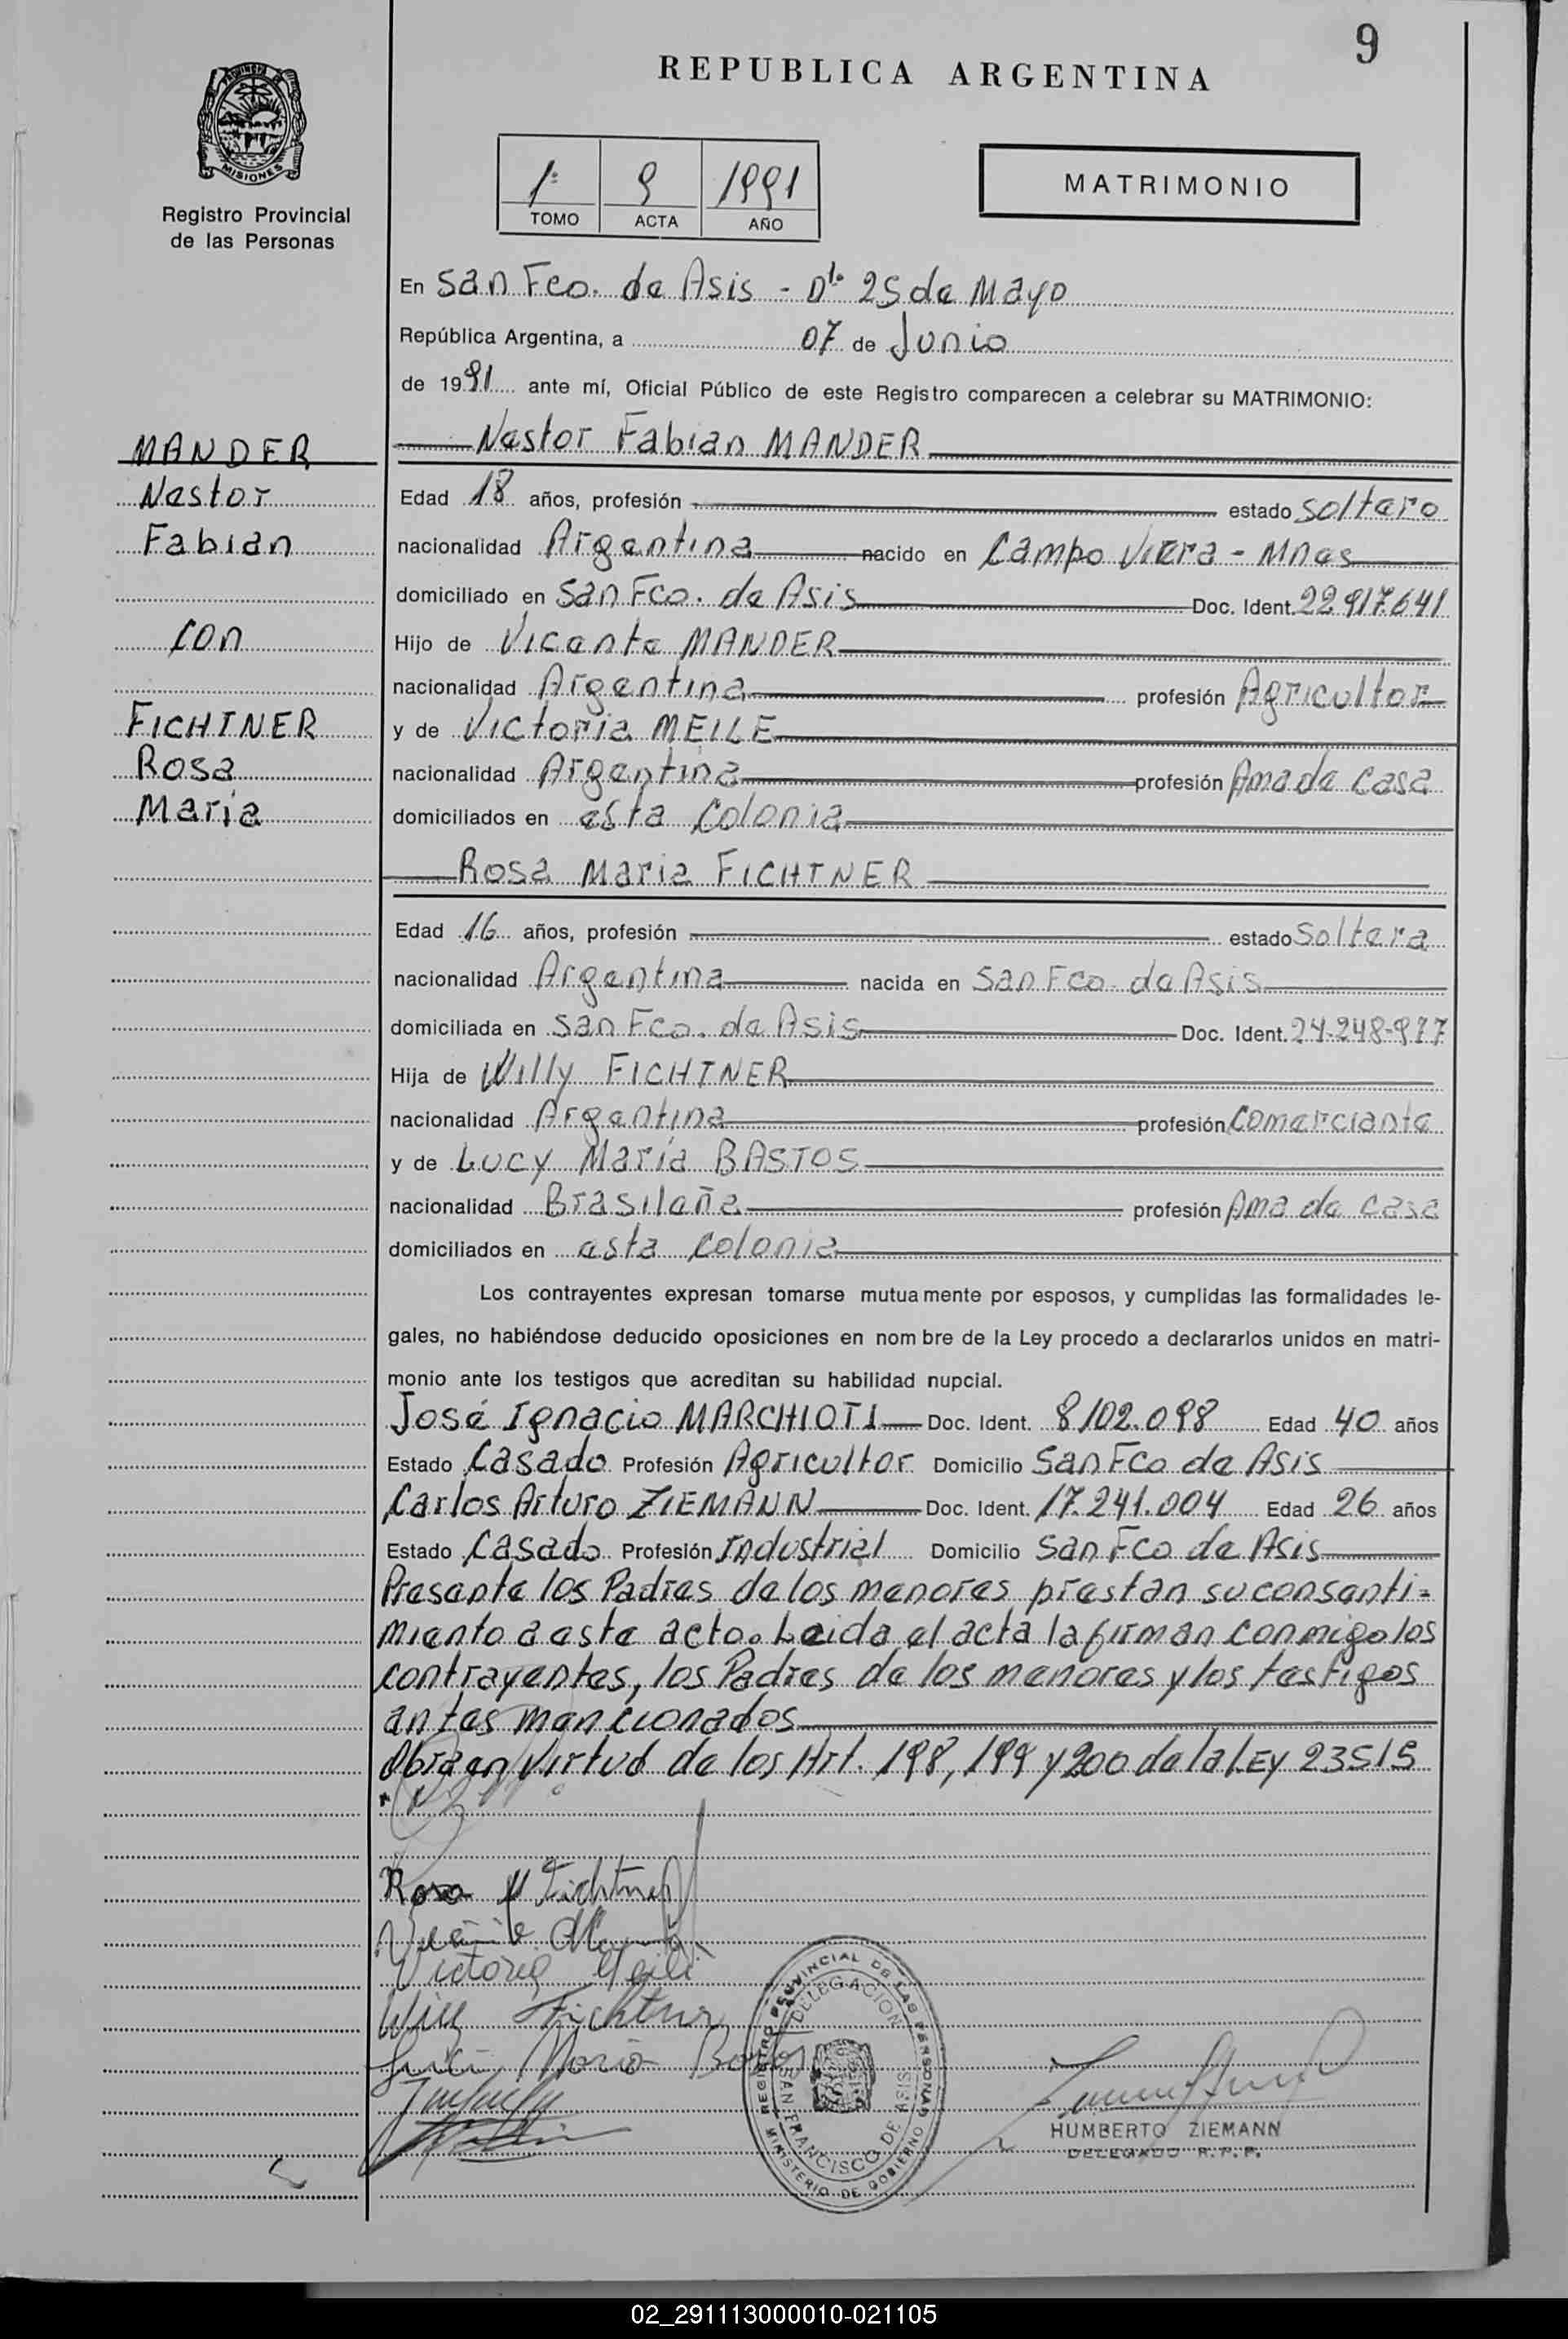 9
REPUBLICA ARGENTINA
PROVINCIA DE
MISIONES
Registro Provincial
de las Personas
1º 9 1991
TOMO ACTA AÑO
MATRIMONIO
En San Fco. de Asis - Dto 25 de Mayo
República Argentina, a 07 de Junio
de 1991 ante mí, Oficial Público de este Registro comparecen a celebrar su MATRIMONIO:
MANDER
Nestor
Fabian
con
FICHTNER
Rosa
Maria
Nestor Fabian MANDER
Edad 18 años, profesión estado soltero
nacionalidad Argentina nacido en Campo Viera - Mnes
domiciliado en San Fco. de Asis Doc. Ident. 22.917.641
Hijo de Vicente MANDER
nacionalidad Argentina profesión Agricultor
y de Victoria MEILE
nacionalidad Argentina profesión Ama de casa
domiciliados en esta Colonia
Rosa Maria FICHTNER
Edad 16 años, profesión estado Soltera
nacionalidad Argentina nacida en San Fco. de Asis
domiciliada en San Fco. de Asis Doc. Ident. 24.248.977
Hija de Willy FICHTNER
nacionalidad Argentina profesión Comerciante
y de Lucy María BASTOS
nacionalidad Brasileña profesión Ama de casa
domiciliados en esta colonia
Los contrayentes expresan tomarse mutuamente por esposos, y cumplidas las formalidades le-
gales, no habiéndose deducido oposiciones en nombre de la Ley procedo a declararlos unidos en matri-
monio ante los testigos que acreditan su habilidad nupcial.
José Ignacio MARCHIOTI Doc. Ident. 8.102.098 Edad 40 años
Estado Casado Profesión Agricultor Domicilio San Fco de Asis
Carlos Arturo ZIEMANN Doc. Ident. 17.241.004 Edad 26 años
Estado Casado Profesión Industrial Domicilio San Fco de Asis
Presente los Padres de los menores prestan su consenti=
miento a este acto. Leida el acta la firman conmigo los
contrayentes, los Padres de los menores y los testigos
antes mencionados
Obra en virtud de los Art. 198, 199 y 200 de la LEY 23515
Rosa M Fichtner
Victoria Meile
Willy Fichtner
Maria Bastos
REGISTRO PROVINCIAL DE LAS PERSONAS
DELEGACION
SAN FRANCISCO DE ASIS
MINISTERIO DE GOBIERNO
HUMBERTO ZIEMANN
DELEGADO R.P.P.
02_291113000010-021105